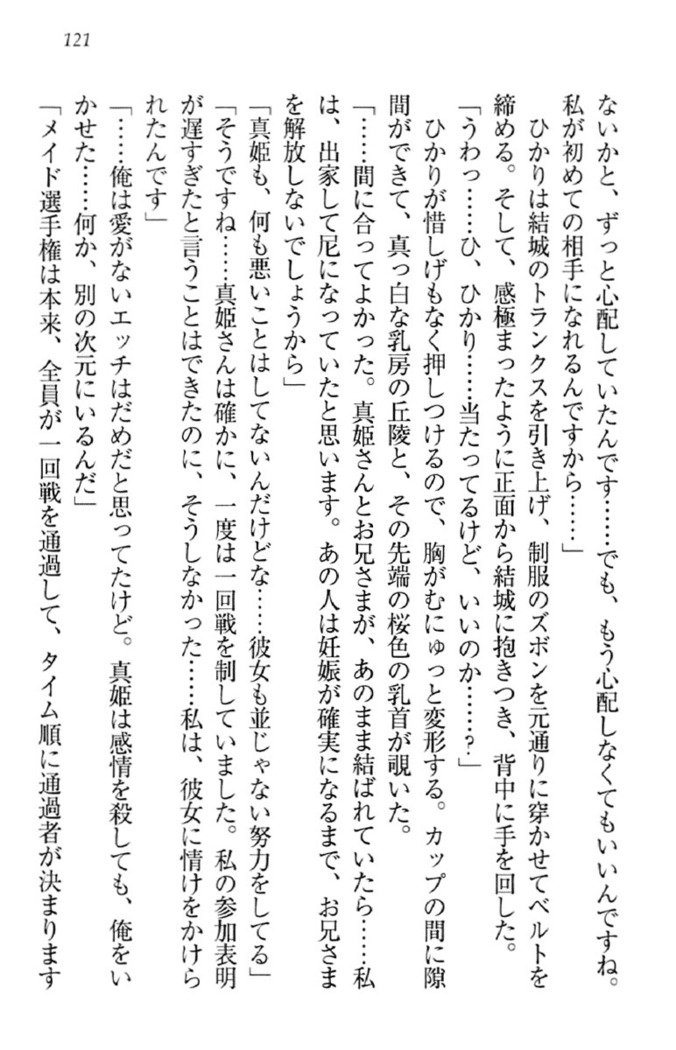 121
ないかと、ずっと心配していたんです……でも、もう心配しなくてもいいんですね。
私が初めての相手になれるんですから……」
ひかりは結城のトランクスを引き上げ、制服のズボンを元通りに穿かせてベルトを
締める。そして、感極まったように正面から結城に抱きつき、背中に手を回した。
「うわっ……ひ、ひかり……当たってるけど、いいのか……？」
ひかりが惜しげもなく押しつけるので、胸がむにゅっと変形する。カップの間に隙
間ができて、真っ白な乳房の丘陵と、その先端の桜色の乳首が覗いた。
「……間に合ってよかった。真姫さんとお兄さまが、あのまま結ばれていたら……私
は、出家して尼になっていたと思います。あの人は妊娠が確実になるまで、お兄さま
を解放しないでしょうから」
「真姫も、何も悪いことはしてないんだけどな……彼女も並じゃない努力をしてる」
「そうですね……真姫さんは確かに、一度は一回戦を制していました。私の参加表明
が遅すぎたと言うことはできたのに、そうしなかった……私は、彼女に情けをかけら
れたんです」
「……俺は愛がないエッチはだめだと思ってたけど。真姫は感情を殺しても、俺をい
かせた……何か、別の次元にいるんだ」
「メイド選手権は本来、全員が一回戦を通過して、タイム順に通過者が決まります